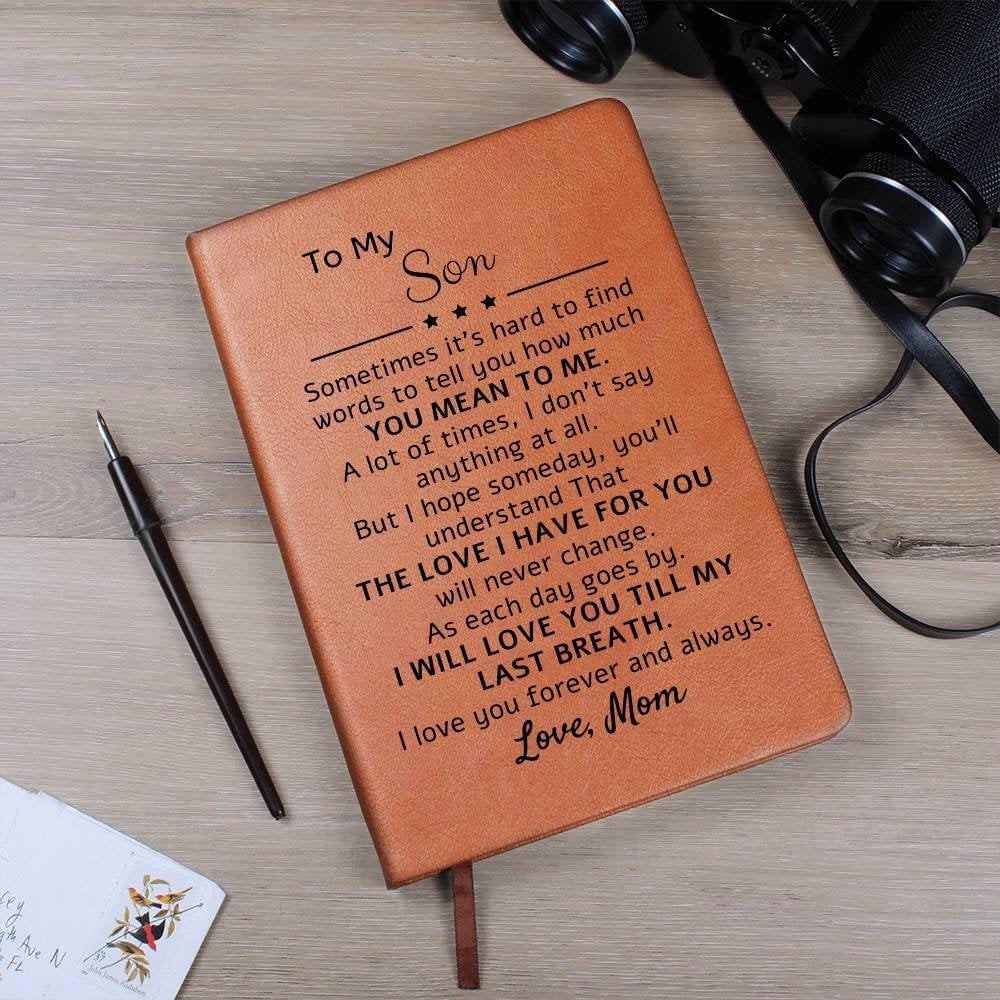 To My
Son
Sometimes it's hard to find
words to tell you how much
YOU MEAN TO ME.
A lot of times, I don't say
anything at all.
But I hope someday, you'll
understand That
THE LOVE I HAVE FOR YOU
will never change.
As each day goes by.
I WILL LOVE YOU TILL MY
LAST BREATH.
I love you forever and always.
Love, Mom
Ave N
FL
37
John James Audubon